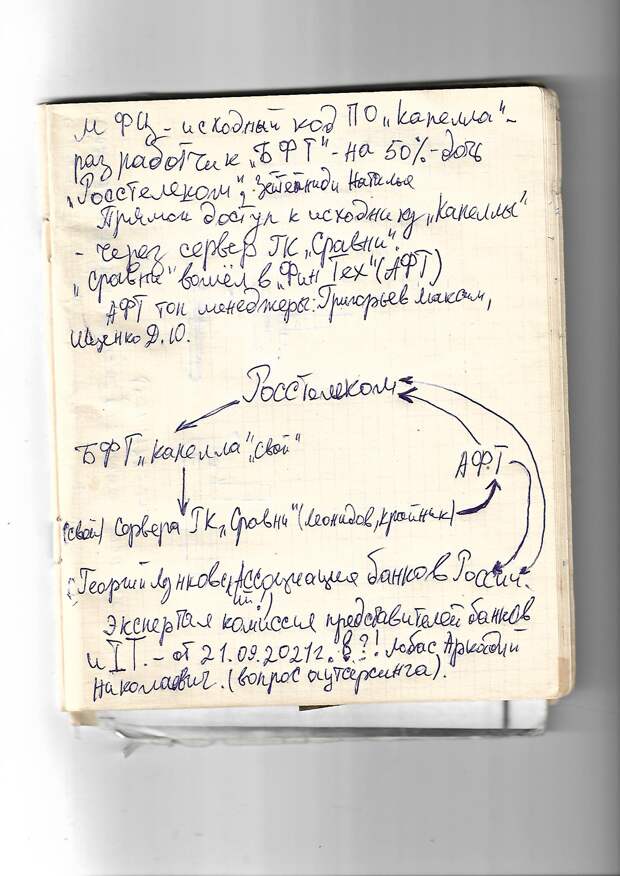 МФЦ - исходный код ПО „Капелла" -
разработчик „БФТ" - на 50% - дочь
„Росстелеком", Наталье
Прямой доступ к исходнику „Капеллы"
- через сервер ГК „Сравни".
„Сравни" вошёл в „ФинТех" (АФТ)
АФТ топ менеджеры: Григорьев Максим,
Ищенко Д.Ю.
Росстелеком
БФТ „Капелла" „свой"
АФТ
(свой) Сервера ГК „Сравни" (Леонидов, Крайник)
Георгий Ассоциация банков России.
Экспертая комиссия представителей банков
и IT. - от 21.09.2021 г. в?! Лобас Аркадий
Николаевич. (вопрос аутсерсинга).